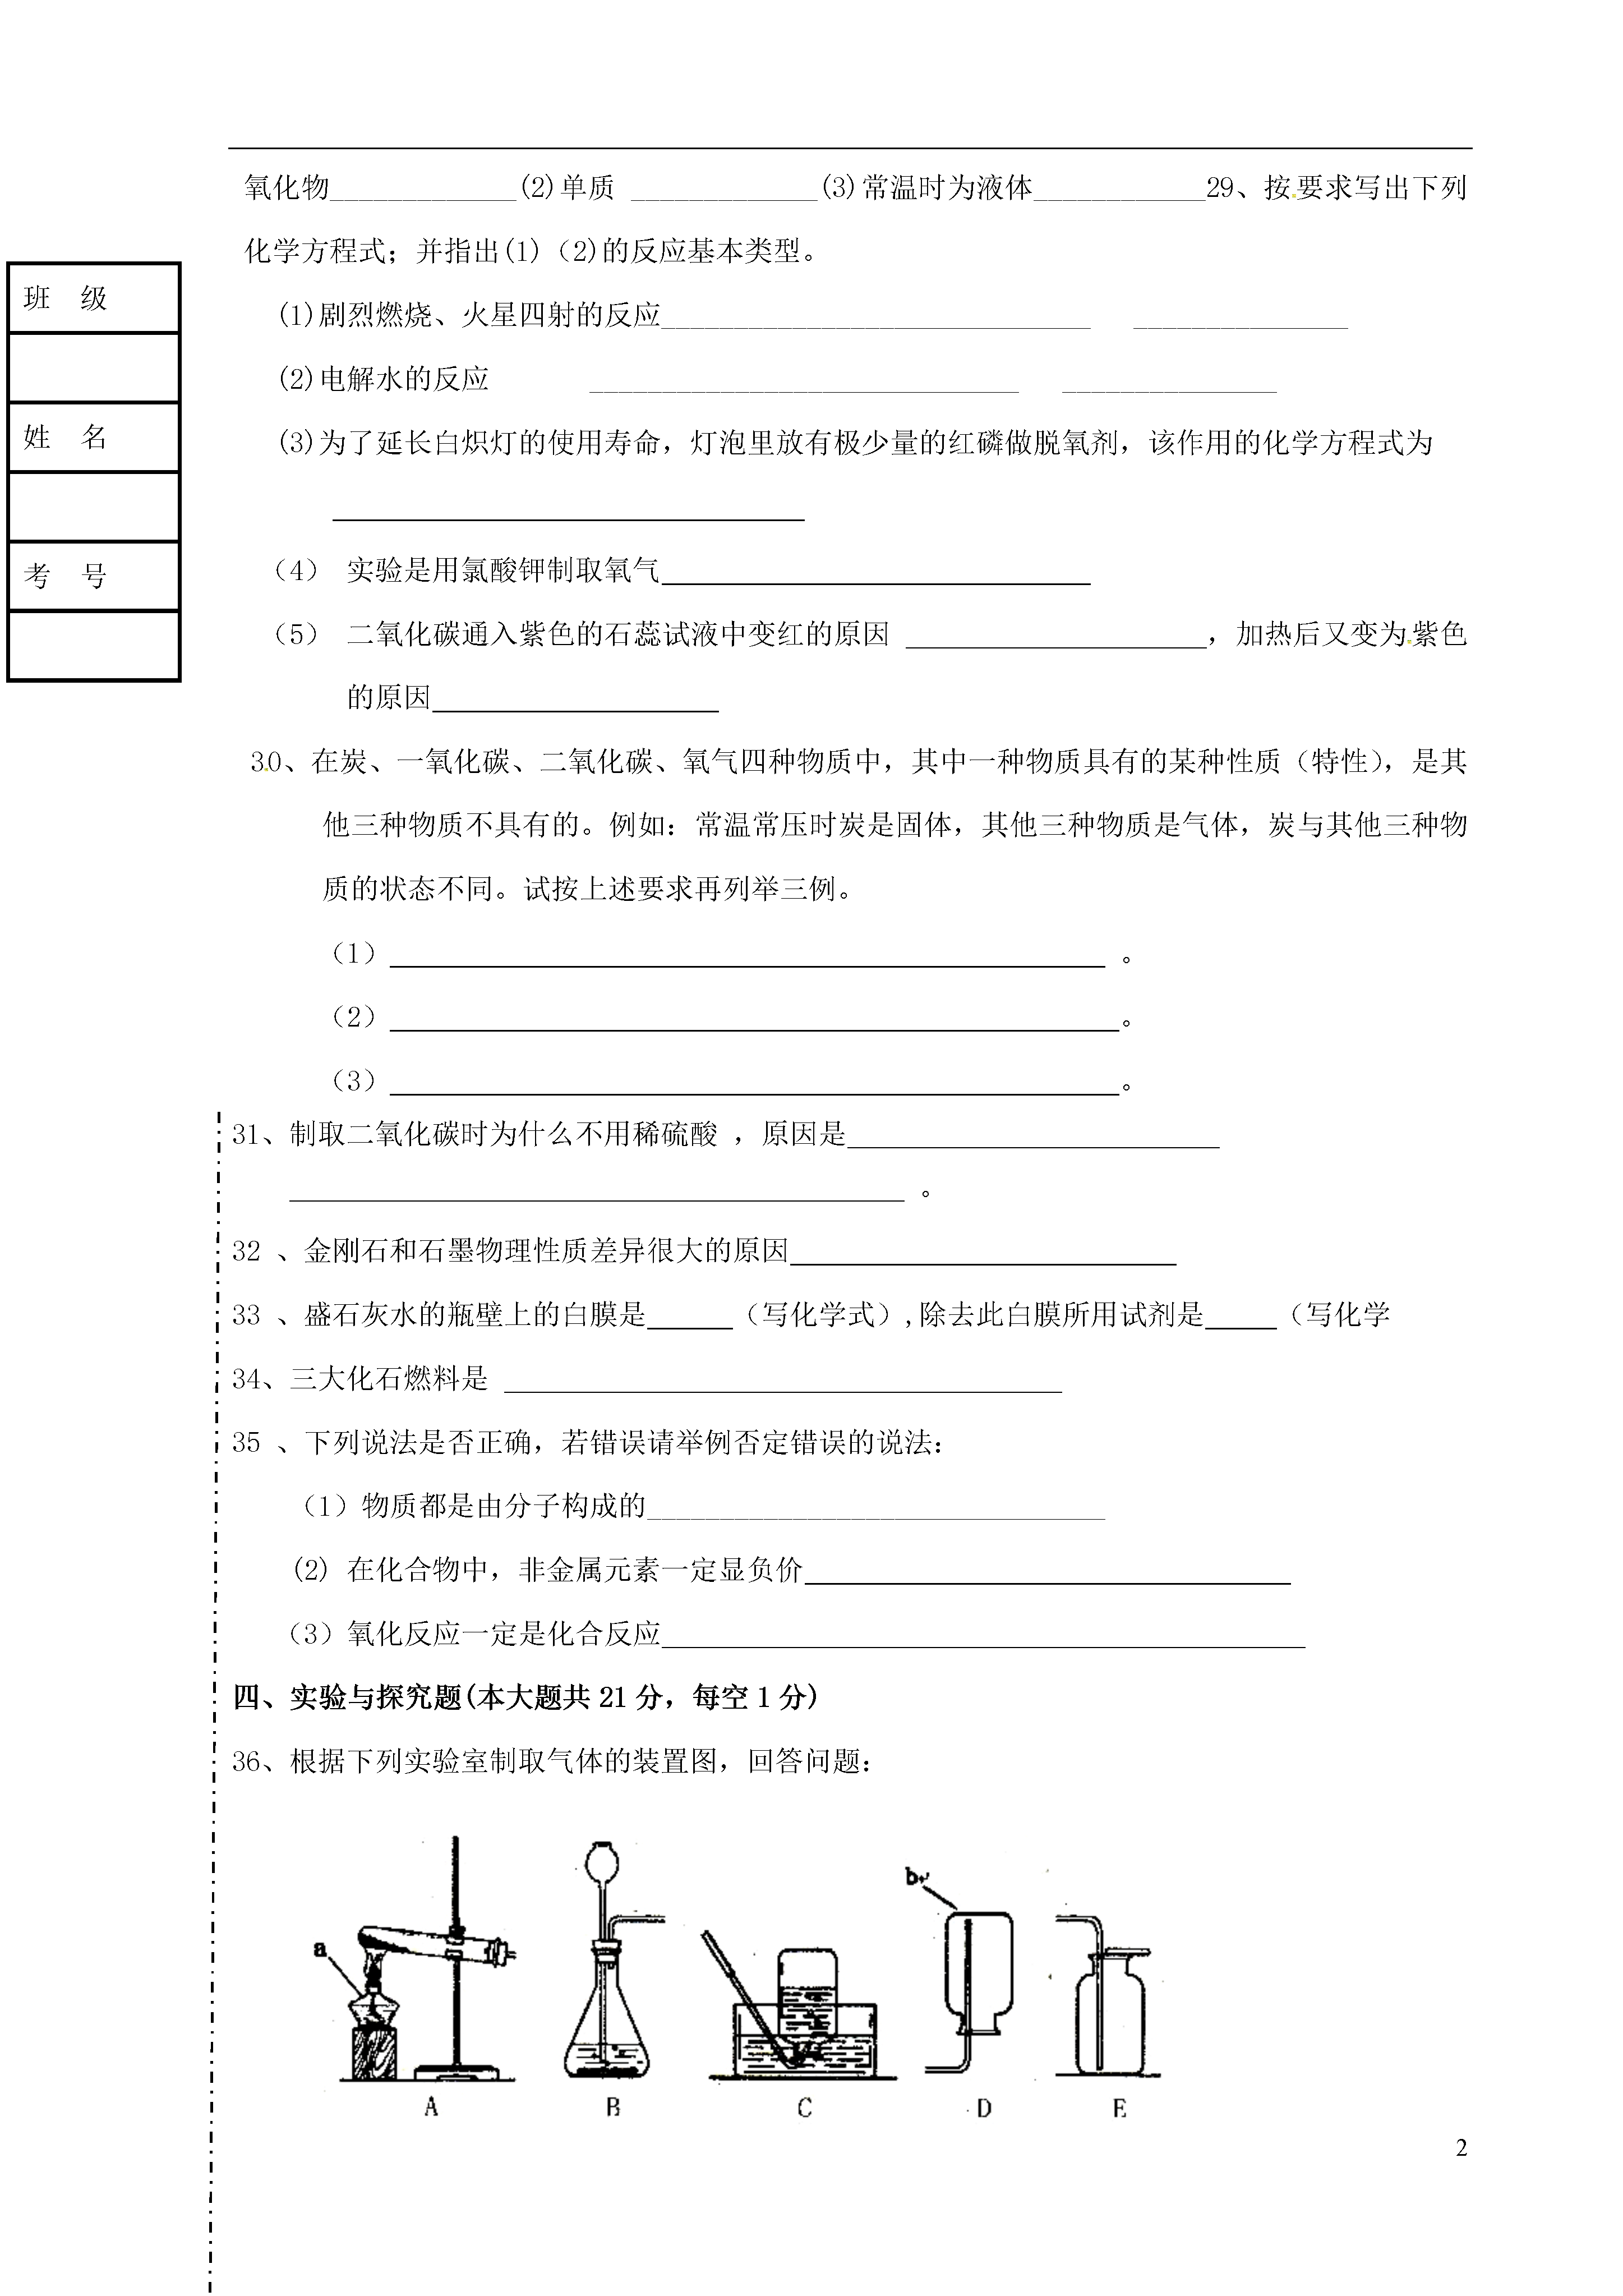 氧化物_____________(2)单质 _____________(3)常温时为液体____________29、按要求写出下列
化学方程式；并指出(1)（2)的反应基本类型。
班 级
(1)剧烈燃烧、火星四射的反应______________________________ _______________
(2)电解水的反应 ______________________________ _______________
姓 名
(3)为了延长白炽灯的使用寿命，灯泡里放有极少量的红磷做脱氧剂，该作用的化学方程式为
_________________________________
考 号
（4） 实验是用氯酸钾制取氧气______________________________
（5） 二氧化碳通入紫色的石蕊试液中变红的原因 _____________________，加热后又变为紫色
的原因____________________
30、在炭、一氧化碳、二氧化碳、氧气四种物质中，其中一种物质具有的某种性质（特性），是其
他三种物质不具有的。例如：常温常压时炭是固体，其他三种物质是气体，炭与其他三种物
质的状态不同。试按上述要求再列举三例。
（1）__________________________________________________ 。
（2）___________________________________________________。
（3）___________________________________________________。
31、制取二氧化碳时为什么不用稀硫酸 ，原因是__________________________
___________________________________________ 。
32 、金刚石和石墨物理性质差异很大的原因___________________________
33 、盛石灰水的瓶壁上的白膜是______（写化学式）,除去此白膜所用试剂是_____（写化学
34、三大化石燃料是 _______________________________________
35 、下列说法是否正确，若错误请举例否定错误的说法：
（1）物质都是由分子构成的________________________________
(2) 在化合物中，非金属元素一定显负价__________________________________
（3）氧化反应一定是化合反应_____________________________________________
四、实验与探究题(本大题共 21 分，每空 1 分)
36、根据下列实验室制取气体的装置图，回答问题：
a
b
A B C D E
2